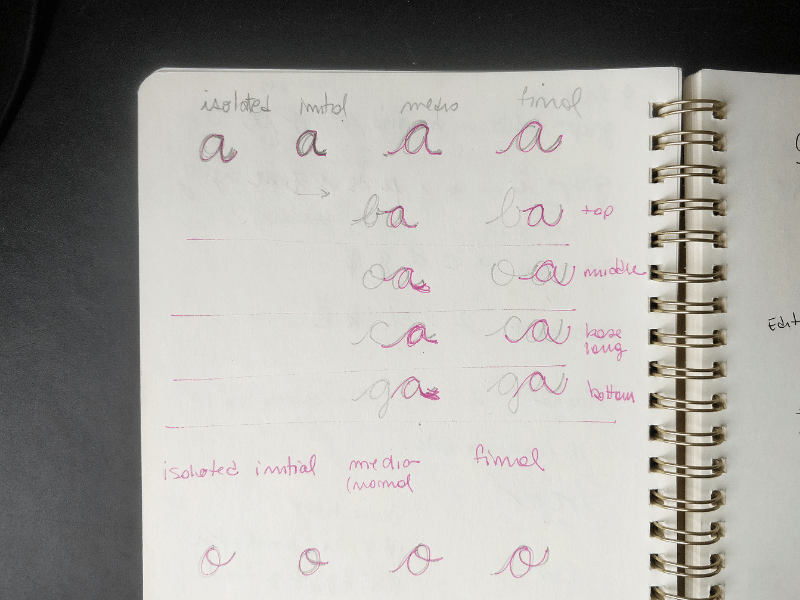 isolated initial medio final
a a a a
ba ba top
oa oa middle
ca ca base
long
ga ga bottom
isolated initial media final
(normal
o o o o
Edit